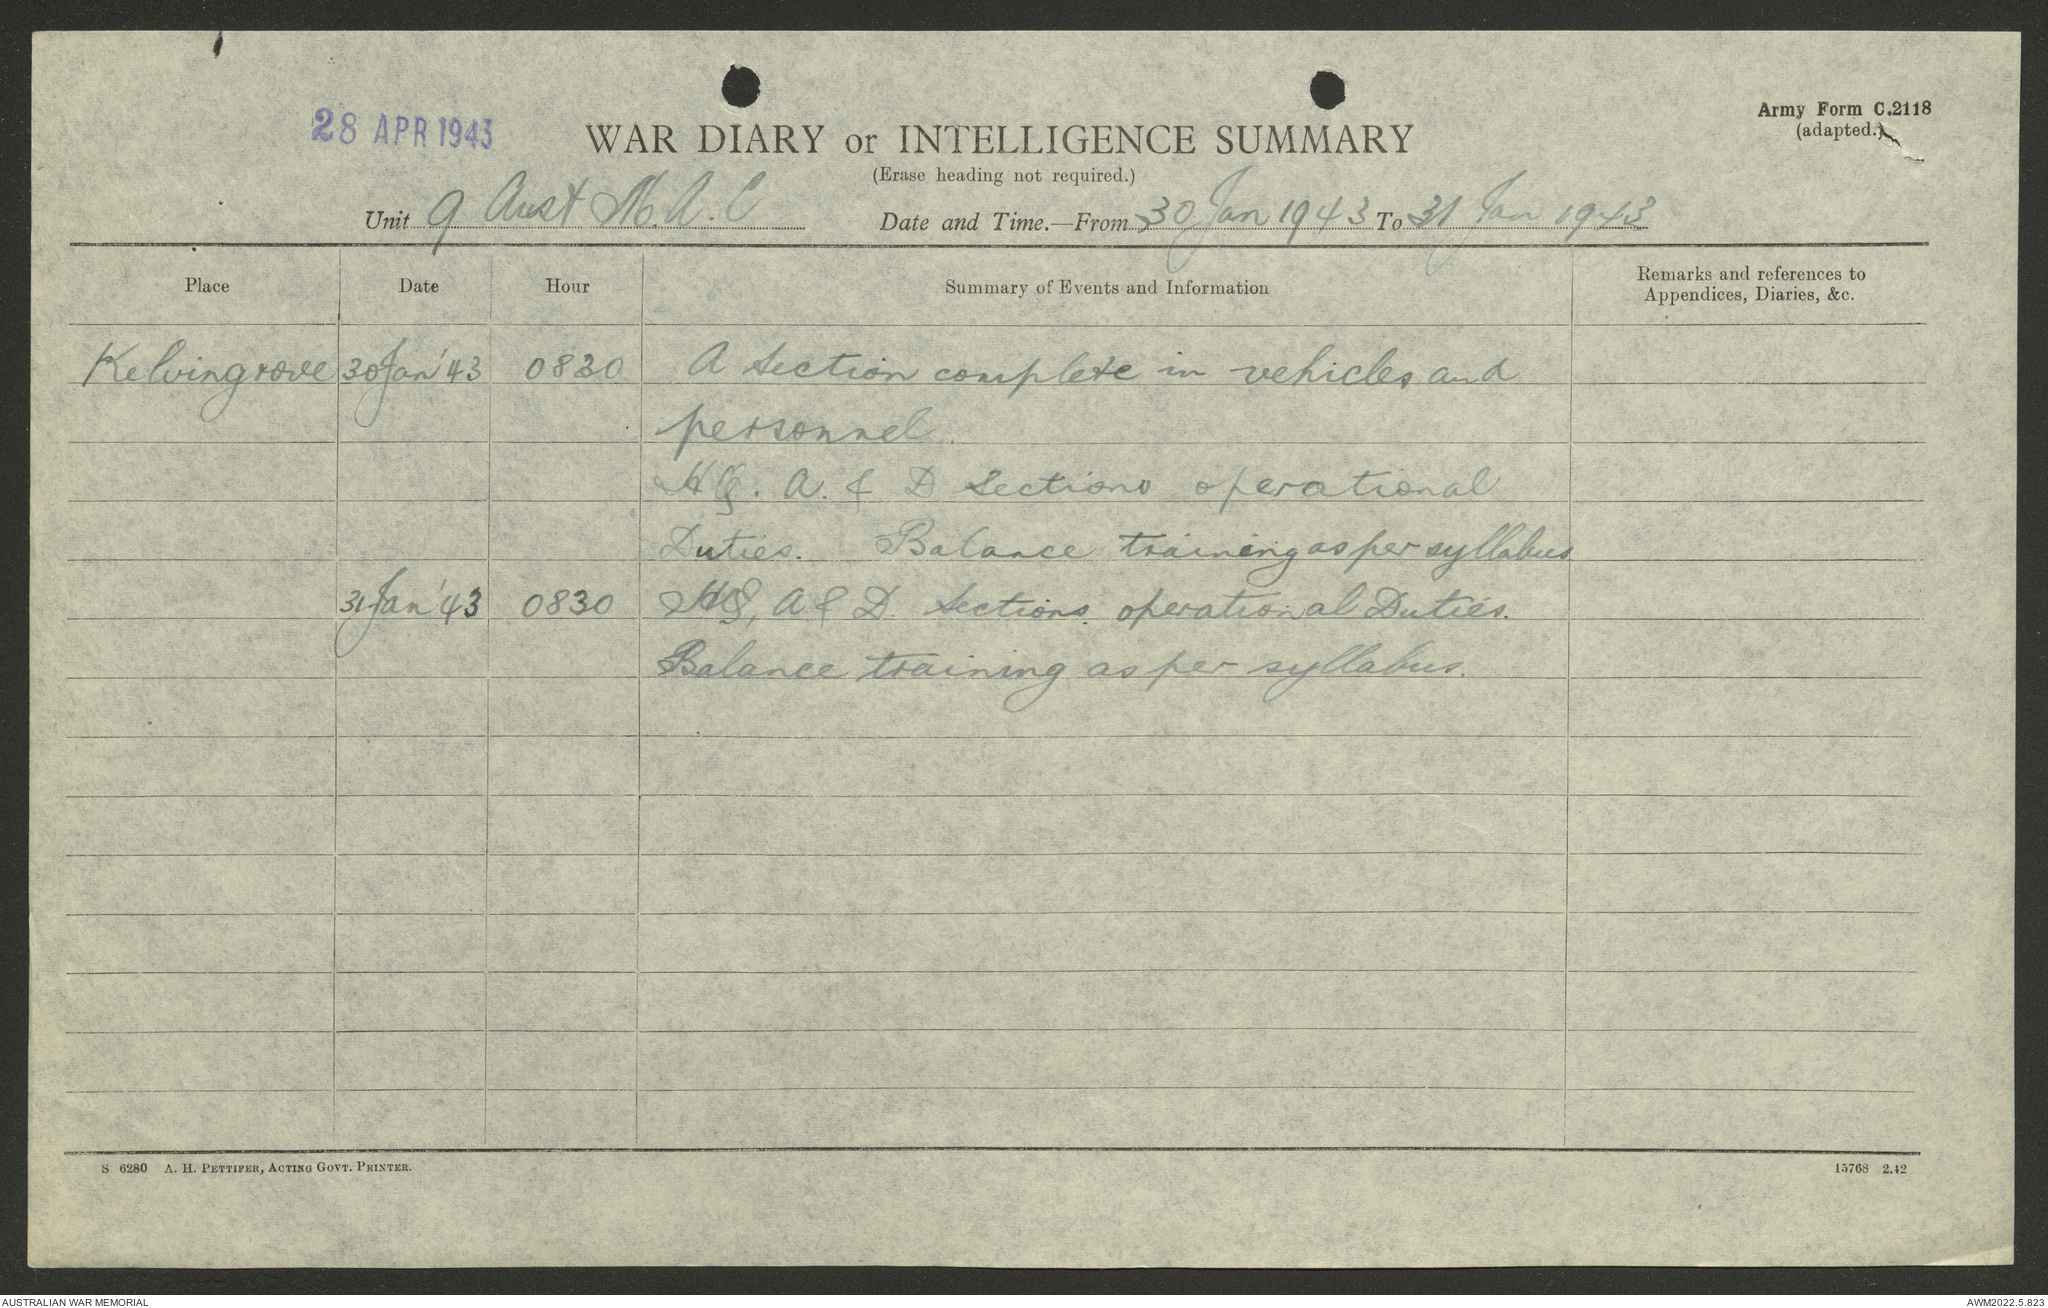 28 APR 1943
Army Form C.2118
(adapted.)
WAR DIARY or INTELLIGENCE SUMMARY
(Erase heading not required.)
Unit 9 Aust M.A.C Date and Time.—From 30 Jan 1943 To 31 Jan 1943
Place Date Hour Summary of Events and Information Remarks and references to
Appendices, Diaries, &c.
Kelvingrove 30 Jan '43 0830 A Section complete in vehicles and
personnel.
HQ. A. & D Sections operational
Duties. Balance training as per syllabus
31 Jan '43 0830 HQ, A & D. Sections operational Duties.
Balance training as per syllabus.
S 6280 A. H. PETTIFER, ACTING GOVT. PRINTER. 15768 2.42
AUSTRALIAN WAR MEMORIAL AWM2022.5.823